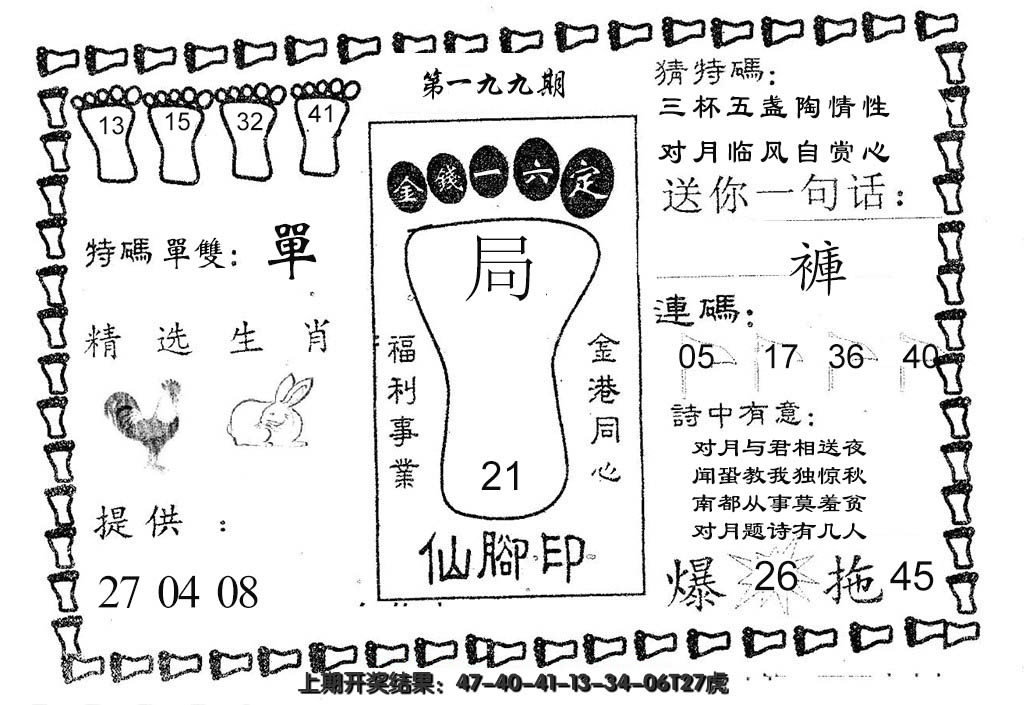 第一九九期
13 15 32 41
特碼單雙：單
精选生肖
提供：
27 04 08
金錢一六定
局
福利事業
金港同心
21
仙腳印
猜特碼：
三杯五盏陶情性
对月临风自赏心
送你一句话：
褲
連碼：
05 17 36 40
詩中有意：
对月与君相送夜
闻蛩教我独惊秋
南都从事莫羞贫
对月题诗有几人
爆 26 拖 45
上期开奖结果：47-40-41-13-34-06T27虎